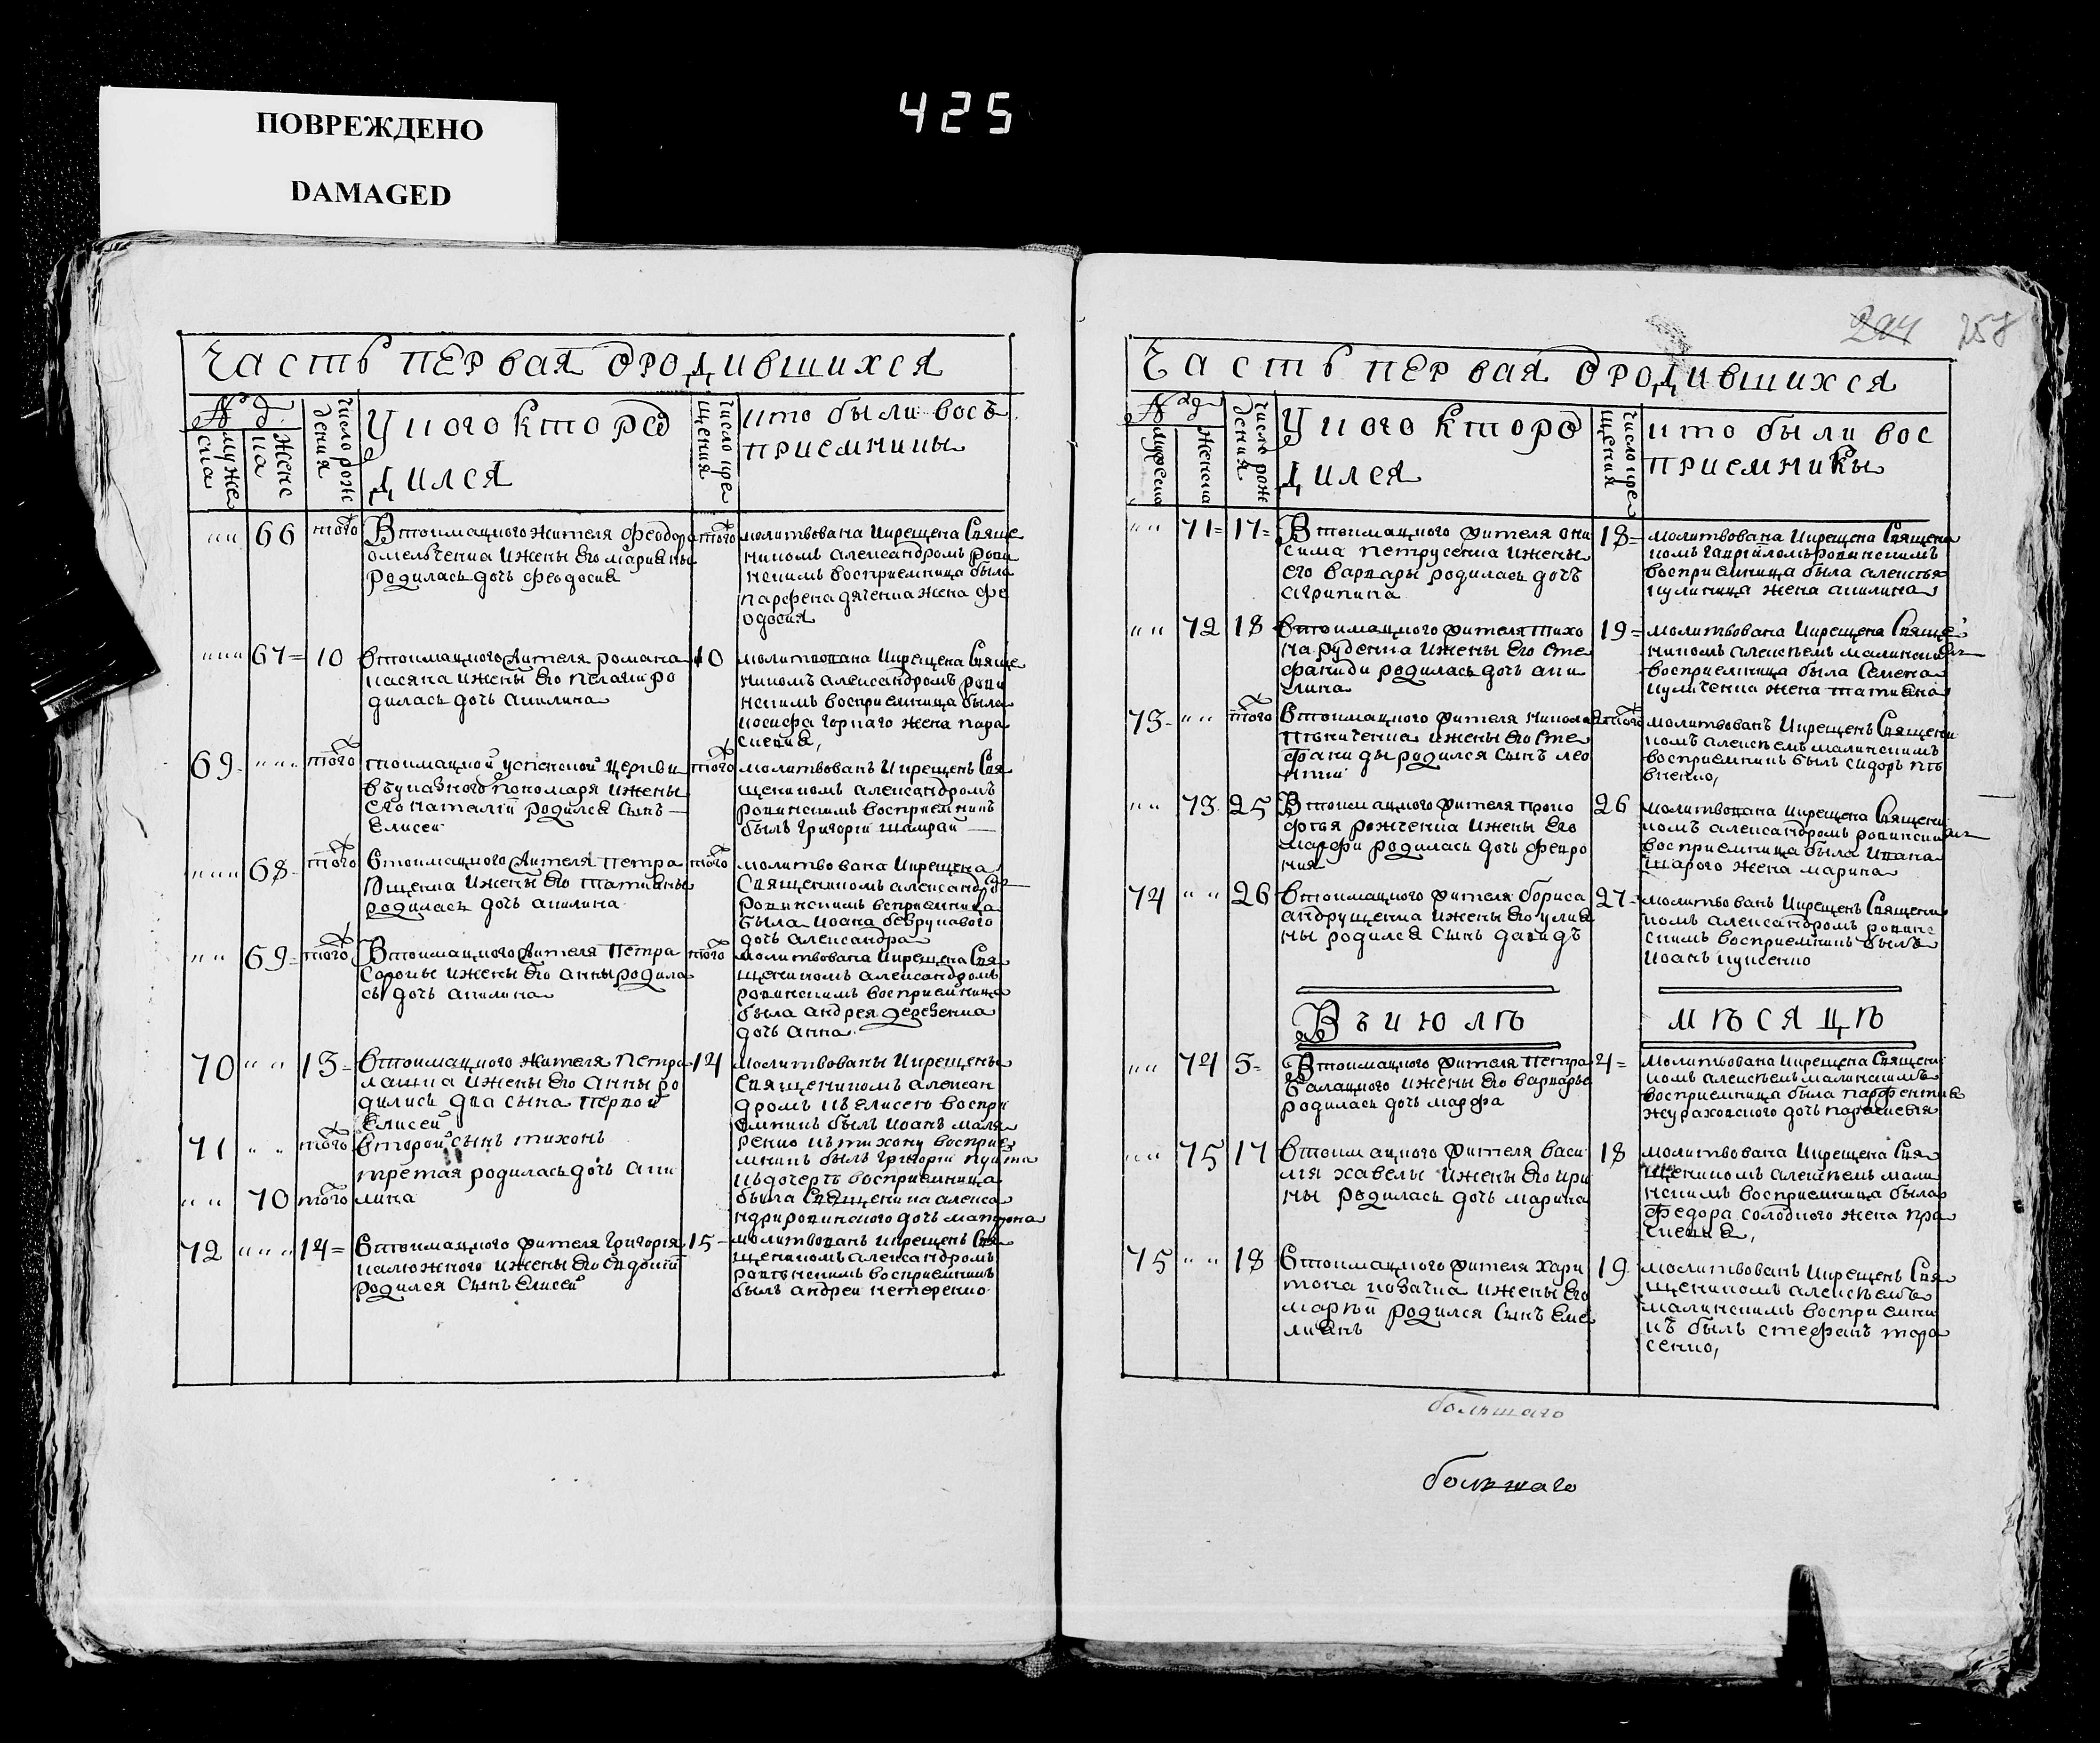 ПОВРЕЖДЕНО
DAMAGED
425
Часть первая о родившихся
№ д
мужеска
женска
число рождения
У кого кто родился
число крещения
кто были восприемницы
66
того
В токмацкого жителя Феодора
омельченка и жены его марианы
родилась дочь феодосия
того
молитвована и крещена Свяще
ником александром рови
нским восприемница была
парфена дяченка жена фе
одосия
67
10
в токмацкого жителя романа
касяна и жены его пелагии ро
дилась дочь акилина
10
молитвована и крещена Свяще
ником александром рови
нским восприемница была
иосифа горпаго жена пара
скевия,
69
того
токмацкой успенской церкви
пономаря и жены
его наталїи родился сынъ
Елисей
того
молитвованъ и крещенъ Свя
щеником александромъ
ровинскимъ восприемникъ
былъ григорїй шамрай
68
того
в токмацкого жителя петра
ющенка и жены его татианы
родилась дочь акилина
того
молитвована и крещена
Священикомъ александро
ровинскимъ всприемница
была иоана безрукавого
дочь александра
69
того
В токмацкого жителя петра
сороки и жены его анны родила
сь дочь акилина
того
молитвована и крещена Свя
щеникомъ александромъ
ровинскимъ восприемница
была андрея деревенка
дочь анна
70
13
в токмацкого жителя петра
лашка и жены его анны ро
дились два сына первой
Елисей
14
молитвованы и крещены
Священикомъ алексан
дромъ къ елисею воспри
емникъ былъ иоанъ маля
ренко къ тихону восприе
мникъ былъ григорїй
къ дочерѣ восприемница
была Священика алекса
ндри ровинского дочь матрона
71
того
второй сынъ тихонъ
третая родилась дочь аки
70
того
лина
72
14
в токмацкого жителя григорїя
калюжного и жены его евдокїи
родился сынъ елисей
15
молитвованъ и крещенъ Свя
щеникомъ александромъ
ровѣнскимъ восприемникъ
былъ андрей нетеренко
244 258
Часть первая о родившихся
№ д
мужеска
женска
число рождения
У кого кто родился
число крещения
кто были восприемники
71
17
В токмацкого жителя они
сима петрусенка и жены
его варвары родилась дочь
агрипина
18
молитвована и крещена Священи
комъ гавріиломъ ровинскимъ
восприемница была алексѣя
куликица жена акилина
72
18
в токмацкого жителя тихо
на руденка и жены его сте
фаниди родилась дочь аки
лина
19
молитвована и крещена Свяще
никомъ алексѣемъ малински
восприемница была семена
куличенка жена татиана
73
того
в токмацкого жителя никола
и жены его сте
фаниды родился сынъ лео
нтий
того
молитвованъ и крещенъ Священи
комъ алексѣемъ малинскимъ
восприемникъ былъ сидоръ пѣ
вненко,
73
25
В токмацкого жителя проко
фья рожченка и жены его
марфи родилась дочь февро
ния
26
молитвована и крещена Священи
комъ александромъ ровински
восприемница была ивана
шарого жена марина
74
26
в токмацкого жителя бориса
андрущенка и жены его улия
ны родился сынъ давидъ
27
молитвованъ и крещенъ Священи
комъ александромъ ровинс
скимъ восприемникъ былъ
иоанъ куценко
Въ июлѣ мѣсяцѣ
74
3
В токмацкого жителя петра
балацкого и жены его варвары
родилась дочь марфа
4
молитвована и крещена Священи
комъ алексѣемъ малинскимъ
восприемница была парфентия
жураховского дочь параскевїя
75
17
в токмацкого жителя васи
лїя хавелы и жены его ири
ны родилась дочь марина
18
молитвована и крещена Свя
щеникомъ алексѣемъ мали
нскимъ восприемница была
федора солодного жена пра
скевия,
75
18
в токмацкого жителя хари
тона козачка и жены его
марѳїи родился сынъ еме
лианъ
19
молитвованъ и крещенъ Свя
щеникомъ алексѣемъ
малинскимъ восприемни
къ былъ стефанъ тара
сенко,
большаго
большаго